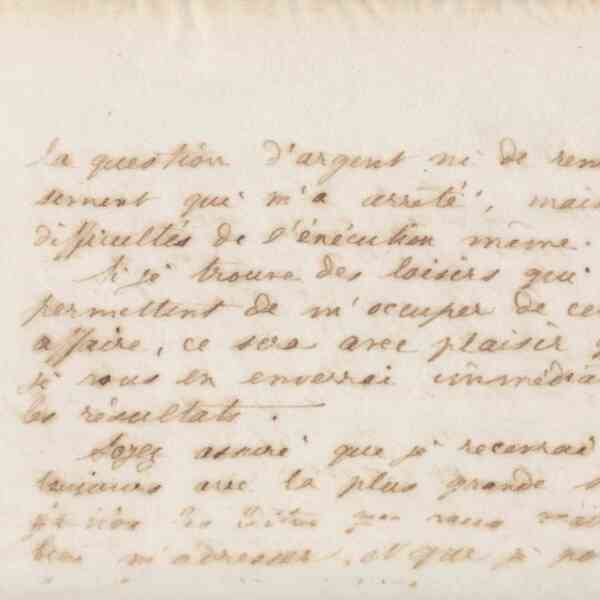 la question d'argent ni de rem
sement qui m'a arrêté, mais
difficultés de l'énécution même.
Si je trouve des loisirs qui
permettent de m'occuper de ce
affaire, ce sera avec plaisir
je vous en enverrai immédia
les résultats.
Soyez assuré que je recevrai
toujours avec la plus grande s
vous
m'adresser, et que je